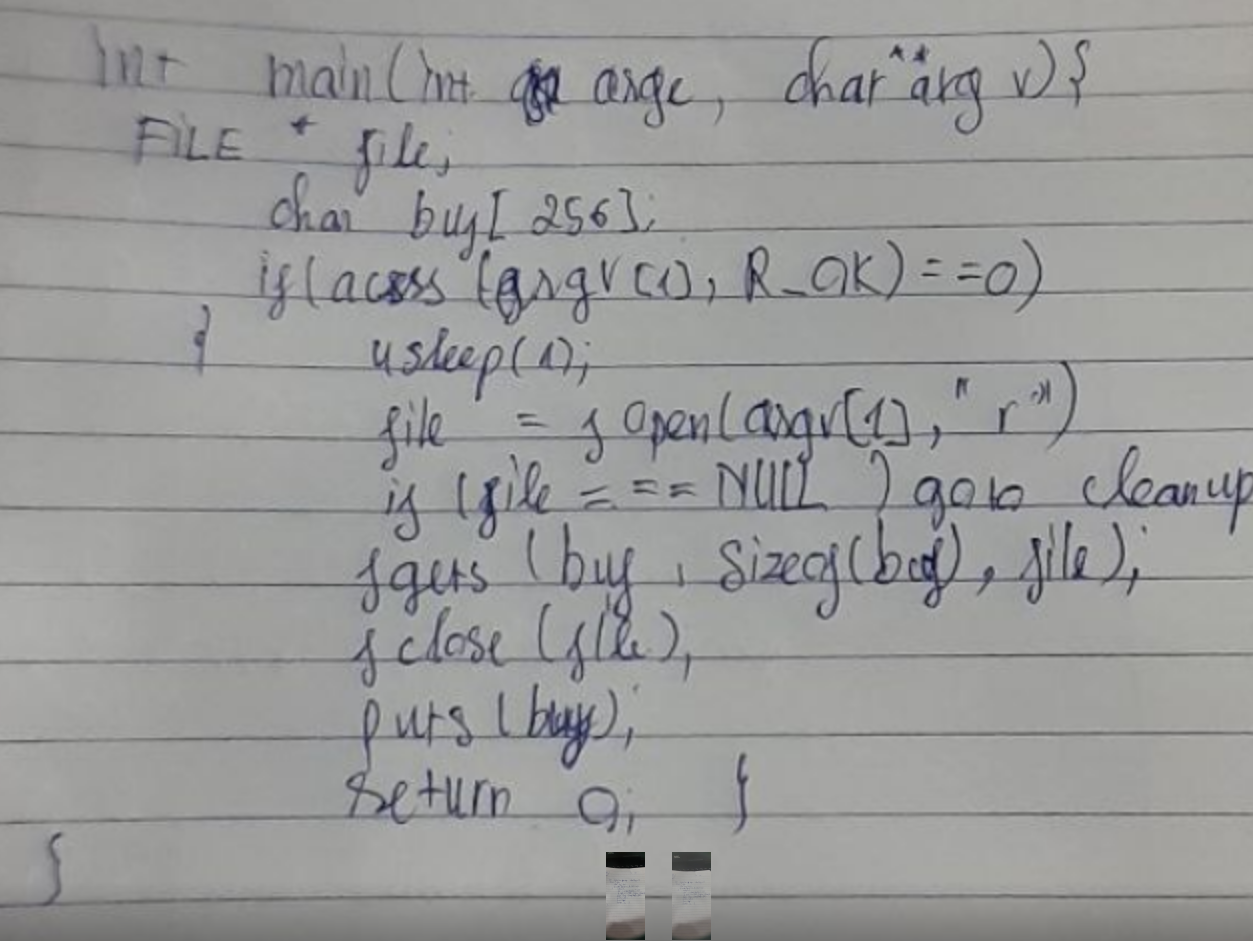 int main(int argc, char **argv){
FILE * file;
char buf[256];
if(access (argv[1], R_OK) ==0)
{ usleep(1);
file = fopen(argv[1], "r")
if (file === NULL ) goto cleanup
fgets (buf, sizeof(buf), file);
fclose (file);
puts (buf);
return 0; }
}